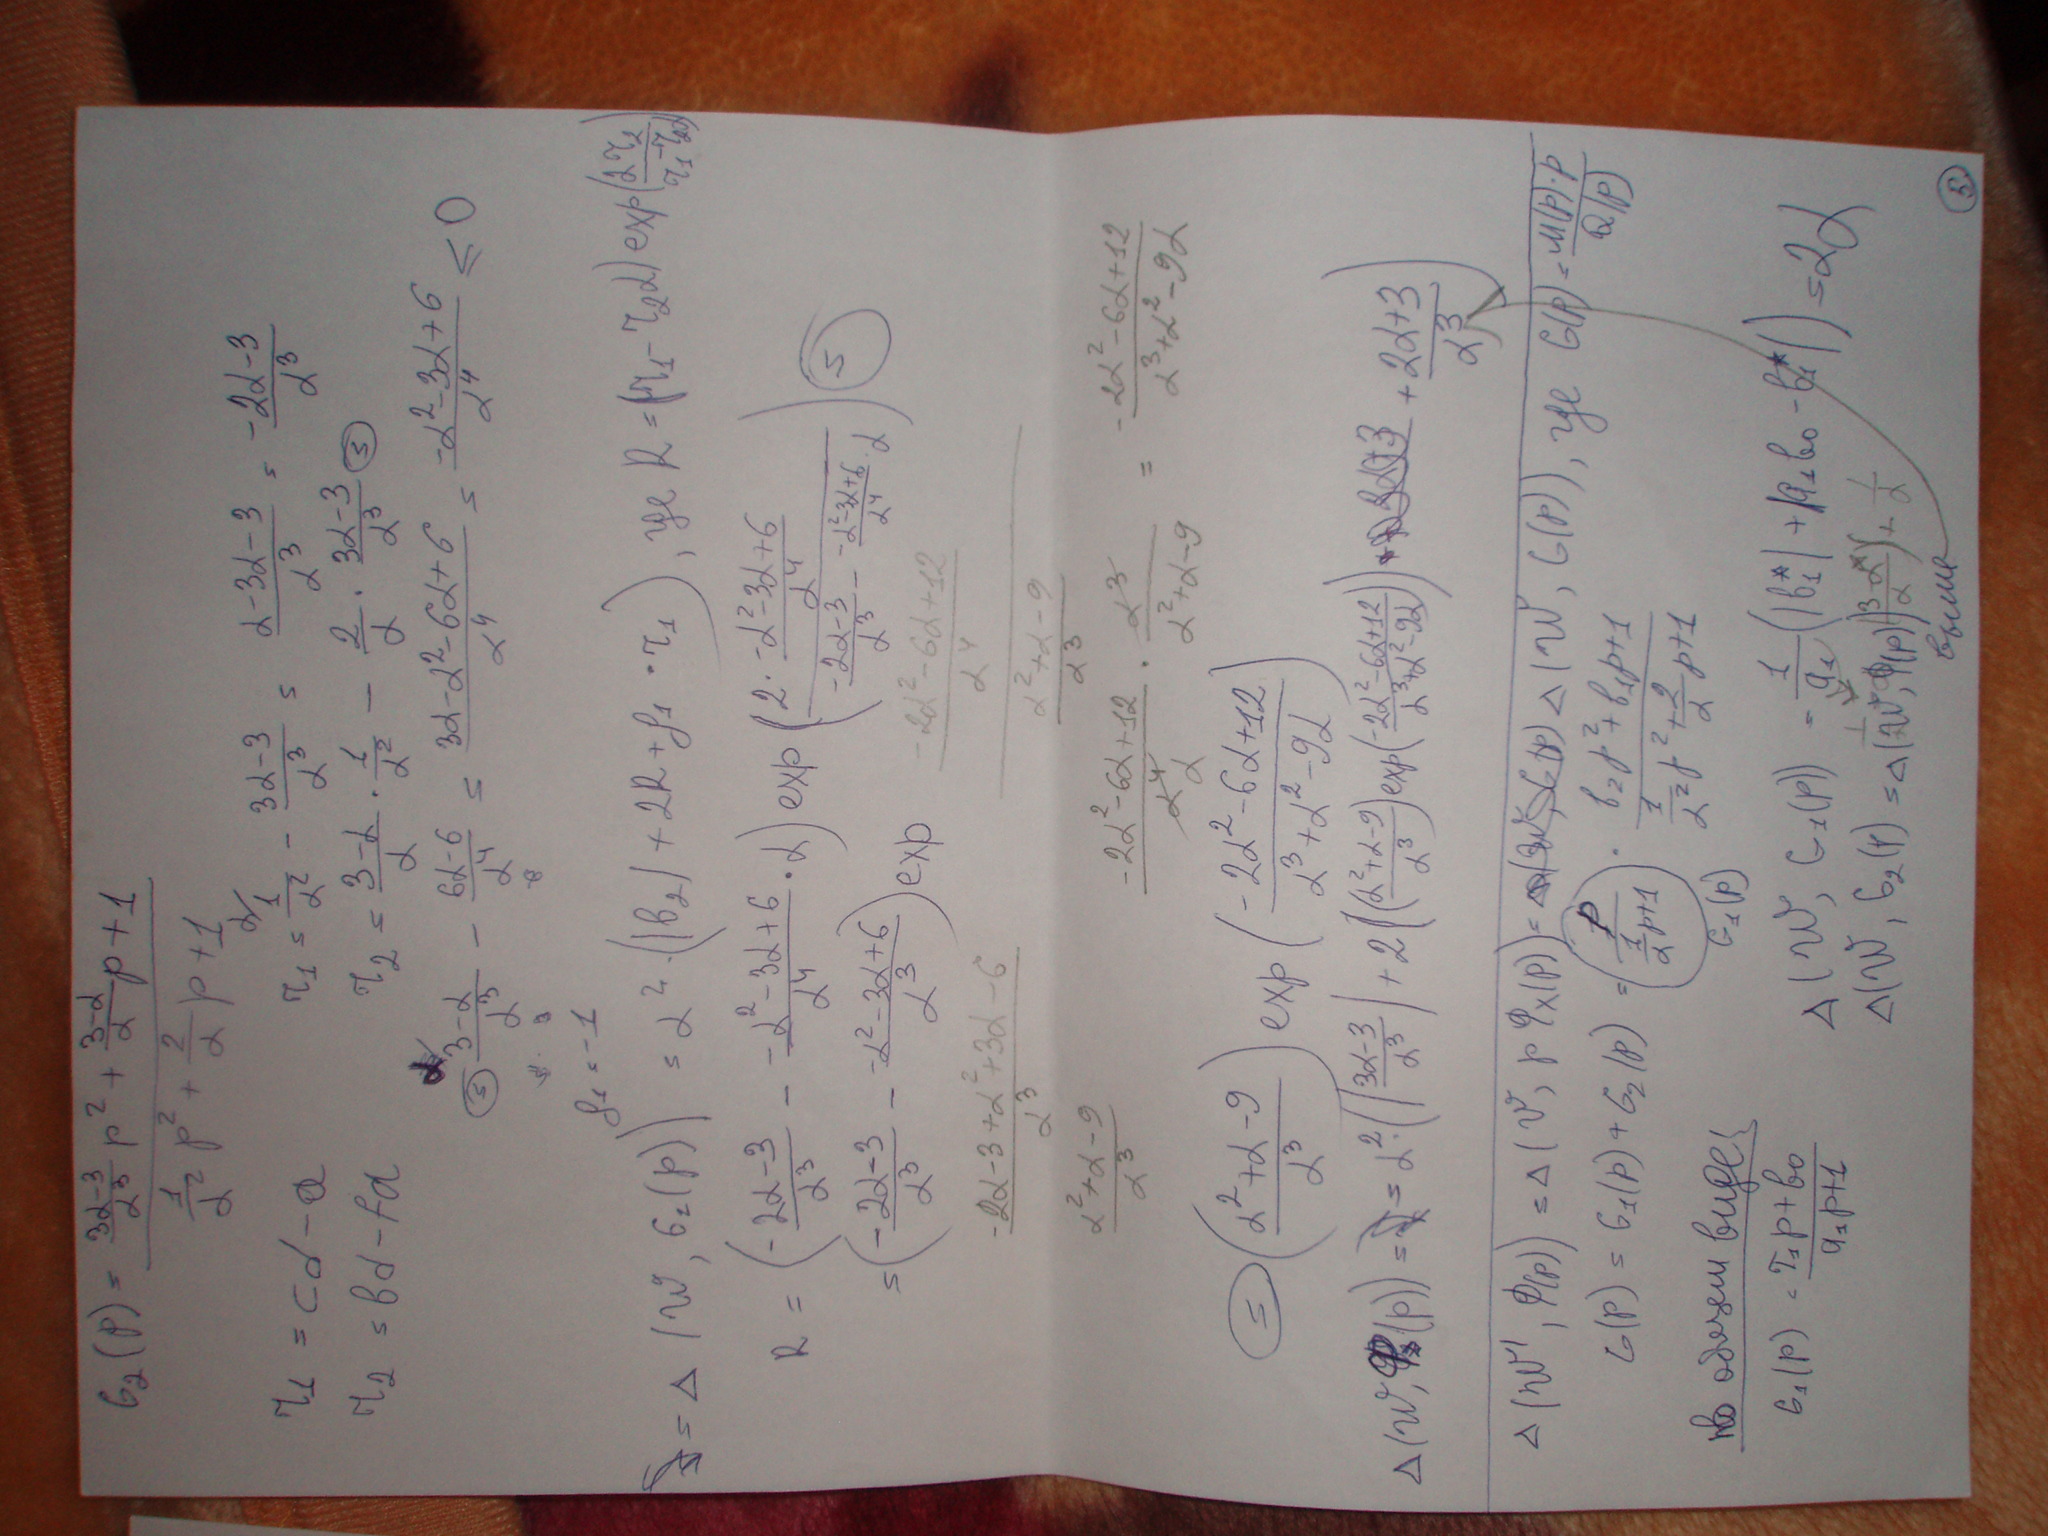 G₂(p) = (3α-3)/α³ p² + (3-α)/α p+1 / 1/α² p² + 2/α p+1
r₁ = cα - a    r₁ = 1/α² - (3α-3)/α³ = (α-3α-3)/α³ = (-2α-3)/α³
r₂ = bα - fa    r₂ = (3-α)/α · 1/α² - 2/α · (3α-3)/α³ =
= (3-α)/α³ - (6α-6)/α⁴ = (3α-α²-6α+6)/α⁴ = (-α²-3α+6)/α⁴ ≤ 0
f₁ = -1
= Δ(w, G₂(p)) = α² · (|b₂| + 2R + f₁ · r₁), где R = (r₁ - r₂α) exp(2r₂/(r₁-r₂α))
R = ((-2α-3)/α³ - (-α²-3α+6)/α⁴ · α) exp(2 · (-α²-3α+6)/α⁴ / ((-2α-3)/α³ - (-α²-3α+6)/α⁴ · α)) =
= ((-2α-3)/α³ - (-α²-3α+6)/α³) exp
(-2α-3+α²+3α-6)/α³    (-2α²-6α+12)/α⁴ / (α²+α-9)/α³
(α²+α-9)/α³    (-2α²-6α+12)/α⁴ · α³/(α²+α-9) = (-2α²-6α+12)/(α³+α²-9α)
= ((α²+α-9)/α³) exp((-2α²-6α+12)/(α³+α²-9α))
Δ(w, φ(p)) = α² · (|(3α-3)/α³| + 2((α²+α-9)/α³) exp((-2α²-6α+12)/(α³+α²-9α)) + (2α+3)/α³)
Δ(w', φ(p)) = Δ(w, p φx(p)) = Δ(w, G(p)), где G(p) = M(p)·p / Q(p)
G(p) = G₁(p) + G₂(p) = p/(1/α p+1) · (b₂p² + b₁p+1)/(1/α² p² + 2/α p+1)
G₁(p)
во общем виде:
G₁(p) = (τ₁p+b₀)/(a₁p+1)    Δ(w, G₁(p)) = 1/a₁ (|b₁*| + |a₁b₀ - b₁*|) = 2α
Δ(w, G₂(p)) = Δ(w, φ(p))
выше
3